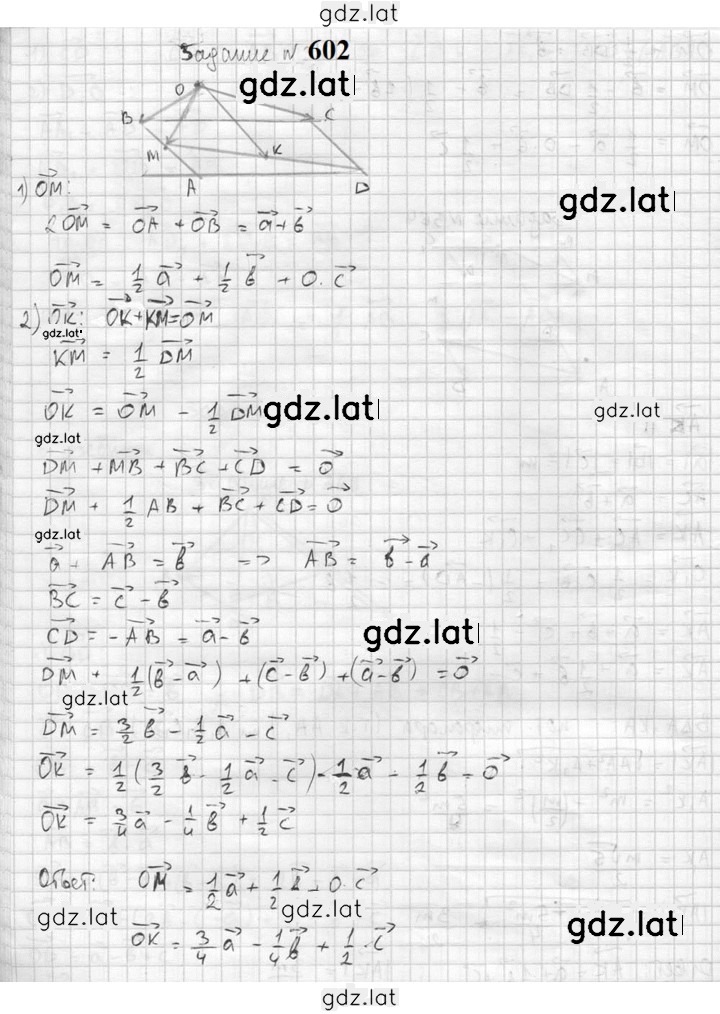 gdz.latl
Задание N 602
gdz.latl
O
B
C
M
K
A
D
gdz.latl
1) OM⃗:
2OM⃗ = OA⃗ + OB⃗ = a⃗ + b⃗
OM⃗ = 1/2 a⃗ + 1/2 b⃗ + 0·c⃗
2) OK⃗: OK⃗ + KM⃗ = OM⃗
gdz.latl
KM⃗ = 1/2 DM⃗
OK⃗ = OM⃗ - 1/2 DM⃗
gdz.latl
gdz.latl
gdz.latl
DM⃗ + MB⃗ + BC⃗ + CD⃗ = 0⃗
DM⃗ + 1/2 AB + BC⃗ + CD⃗ = 0⃗
gdz.latl
a⃗ + AB⃗ = b⃗ => AB⃗ = b⃗ - a⃗
BC⃗ = c⃗ - b⃗
CD⃗ = -AB⃗ = a⃗ - b⃗
gdz.latl
DM⃗ + 1/2(b⃗ - a⃗) + (c⃗ - b⃗) + (a⃗ - b⃗) = 0⃗
gdz.latl
DM⃗ = 3/2 b⃗ - 1/2 a⃗ - c⃗
OK⃗ = 1/2(3/2 b⃗ - 1/2 a⃗ - c⃗) - 1/2 a⃗ - 1/2 b⃗ = 0⃗
OK⃗ = 3/4 a⃗ - 1/4 b⃗ + 1/2 c⃗
Ответ: OM⃗ = 1/2 a⃗ + 1/2 b⃗ + 0·c⃗
gdz.latl
gdz.latl
gdz.latl
OK⃗ = 3/4 a⃗ - 1/4 b⃗ + 1/2·c⃗
gdz.latl